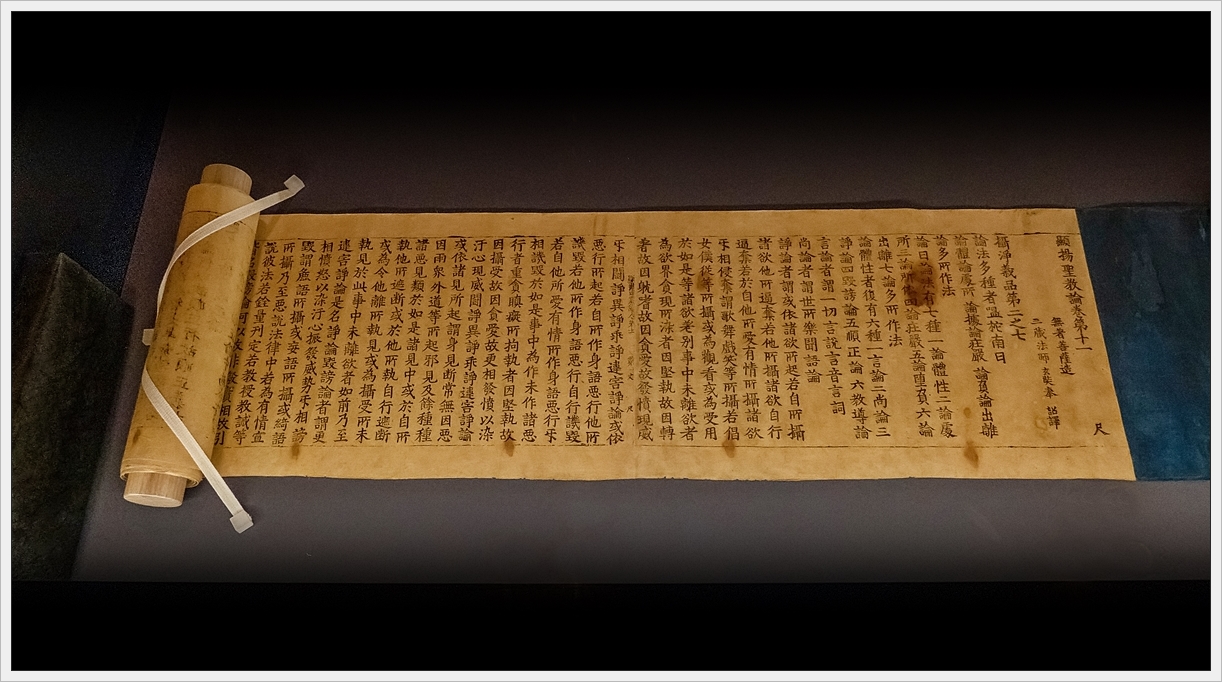 顯揚聖教論卷第十一
無著菩薩造
三藏法師玄奘奉 詔譯
尺
攝淨義品第二之七
論法多種者嗢拕南曰
論體論處所 論據論莊嚴 論負論出離
論多所作法
論曰論法有七種一論體性二論處
所三論所據四論莊嚴五論墮負六論
出離七論多所作法
論體性者復有六種一言論二尚論三
諍論四毀謗論五順正論六教導論
言論者謂一切言說言音言詞
尚論者謂世所樂聞語論
諍論者謂或依諸欲所起若自所攝
諸欲他所逼奪若他所攝諸欲自行
逼奪若於自他所愛有情所攝諸欲
乎相侵奪謂歌舞戲笑等所攝若倡
女僕從等所攝或為觀看或為受用
於如是等諸欲差別事中未離欲者
為欲界貪現所染汙者因堅執故因轉
著故因躭者故因貪愛故發憤現威
乎相鬪諍異諍乖諍違害諍論或依
惡行所起若自所作身語惡行他所
譏毀若他所作身語惡行自行譏毀
若自他所愛有情所作身語惡行乎
相譏毀於如是事中為作未作諸惡
行者重貪瞋癡所拘執者因堅執故
因攝受故因貪愛故更相發憤以染
汙心現威鬪諍異諍乖諍違害諍論
或依諸見所起謂身見斷常無因惡
因兩衆外道等所起邪見及餘種種
諸惡見類於如是諸見中或於自所
執他所遮斷或於他所執自行遮斷
或為令他離所執見或為攝受所未
執見於此事中未離欲者如前乃至
違害諍論是名諍論毀謗論者謂更
相憤怒以染汙心振發威勢乎相謗
毀謂麁語所攝或妄語所攝或綺語
所攝乃至惡說法律中若為有情宣
說彼法若銓量刊定若教授教誡等